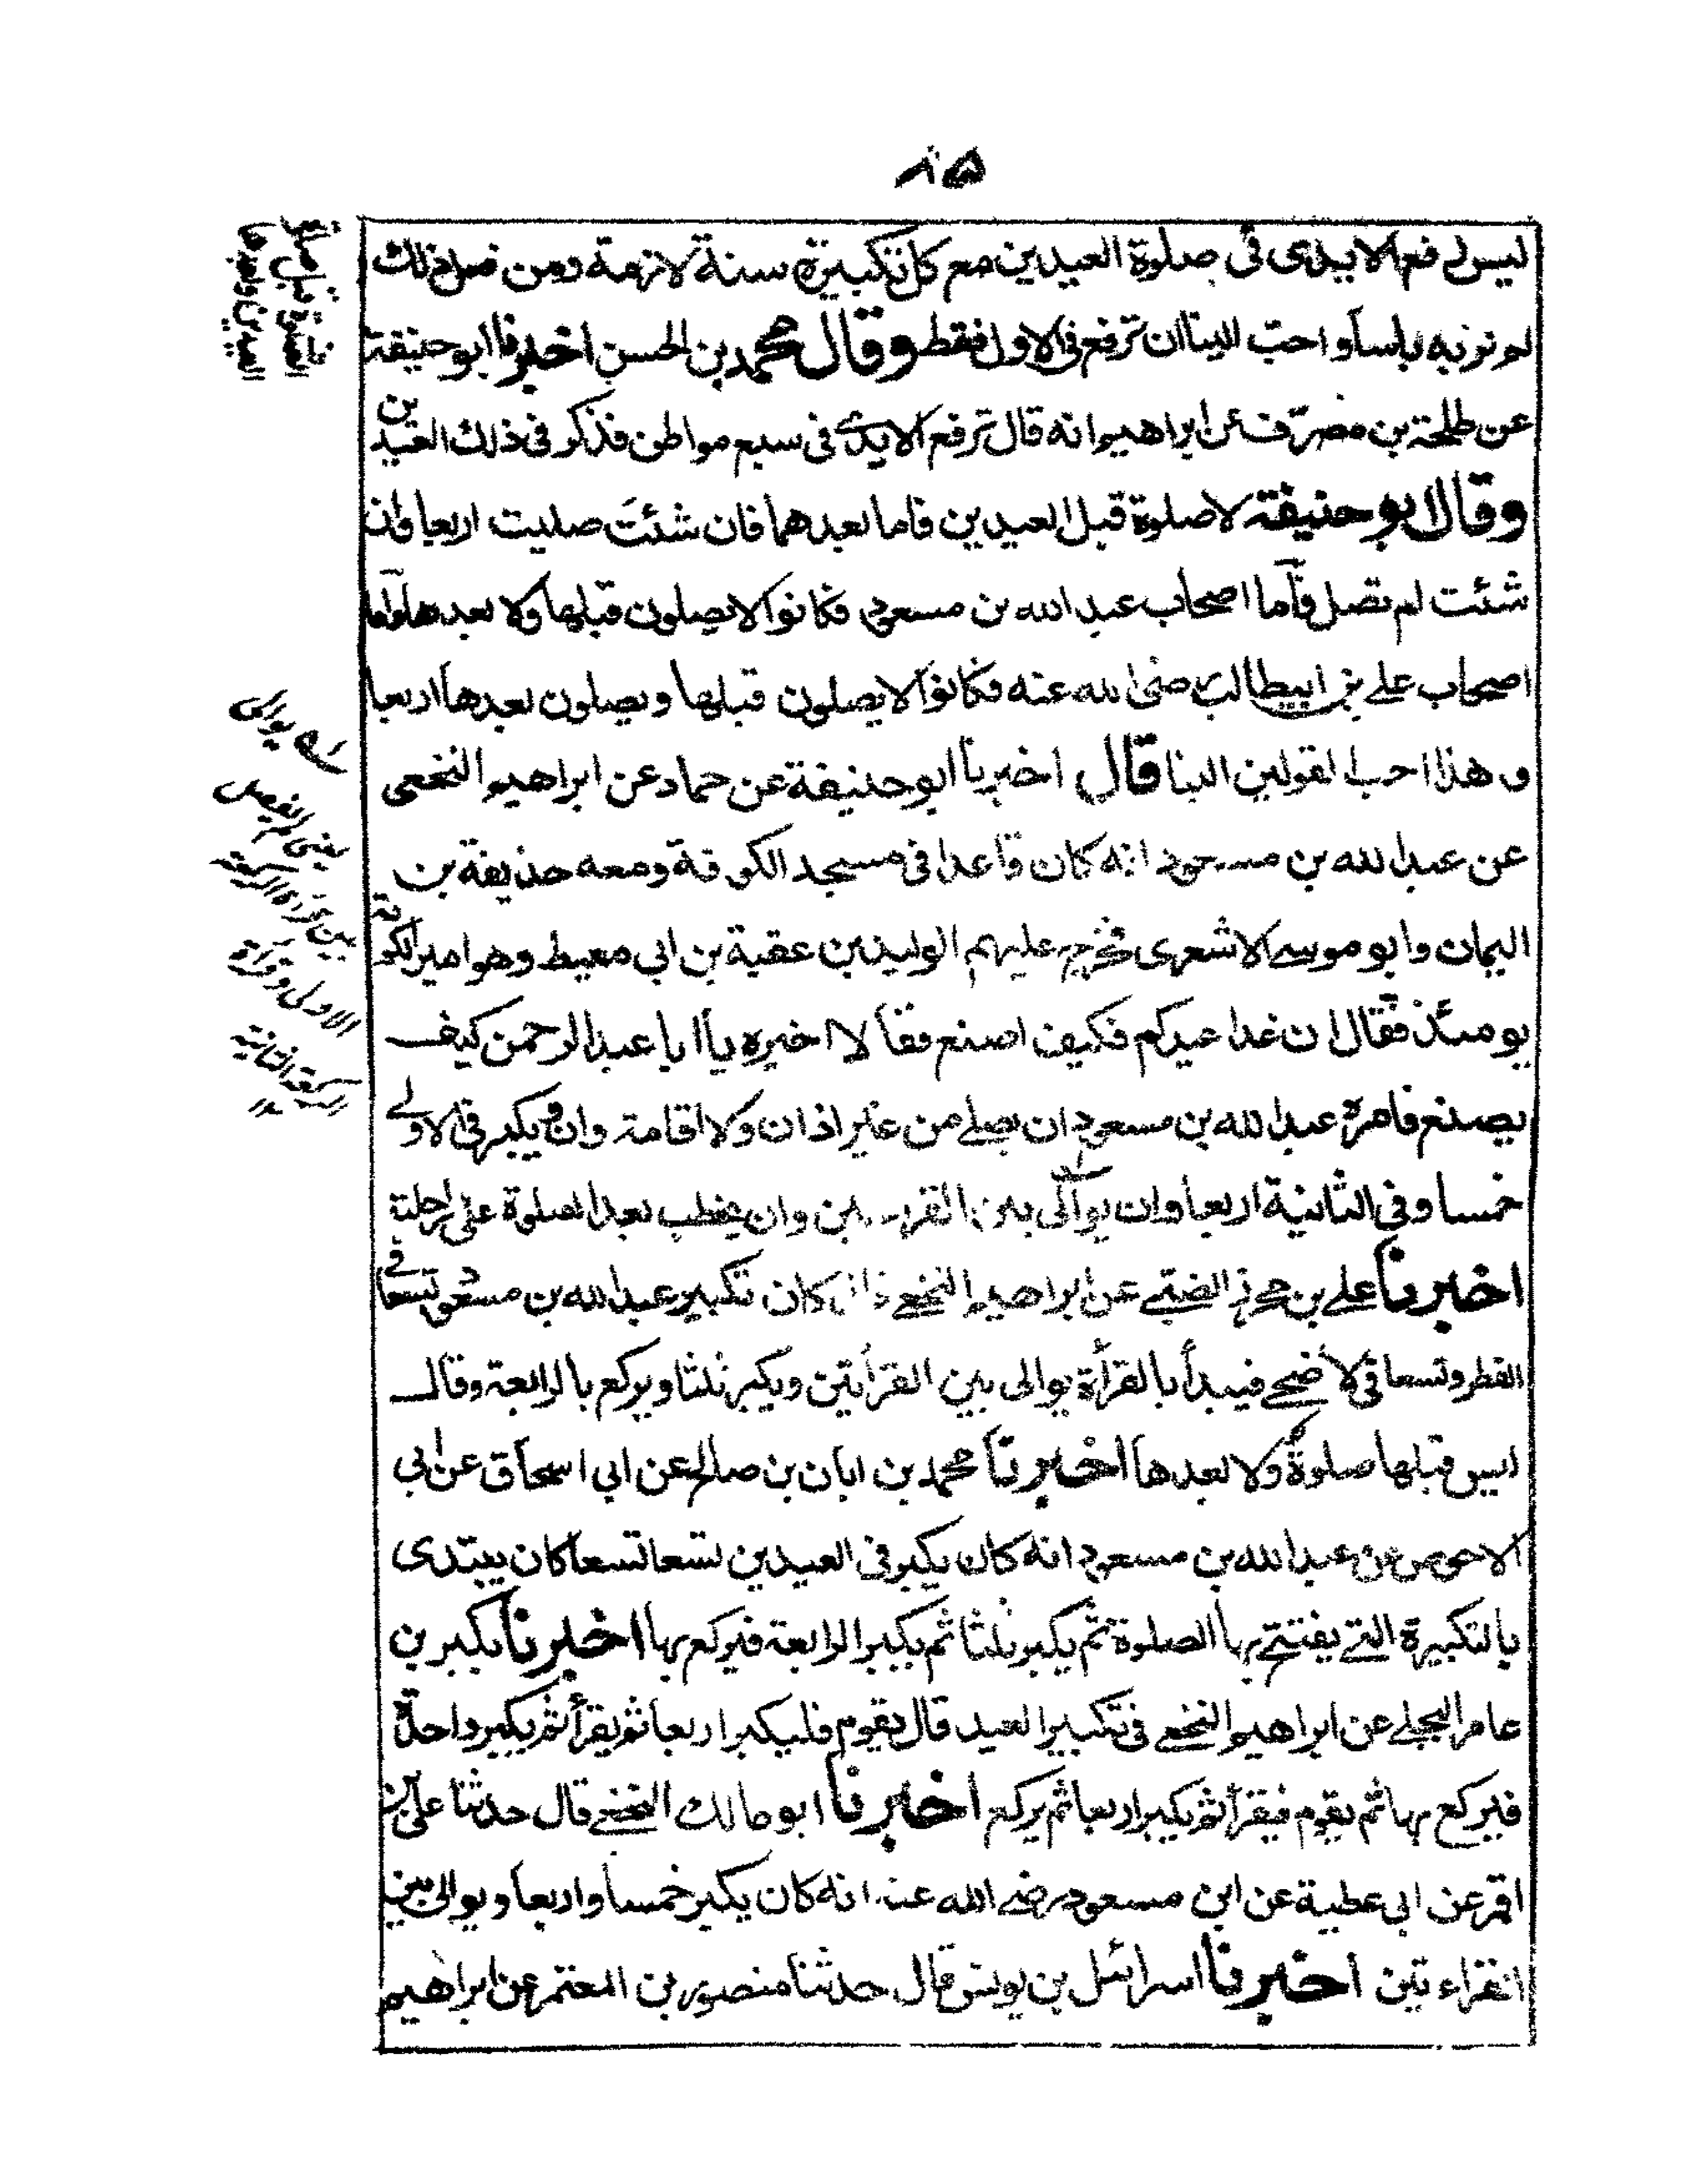 ٨٥
ليس رفع الايدى فى صلوة العيدين مع كل تكبيرة سنة لازمة ومن فعل ذلك
لم نر به باسا واحب الينا ان ترفع فى الاولى فقط وقال محمد بن الحسن اخبرنا ابو حنيفة
عن طلحة بن مصرّف عن ابراهيم انه قال ترفع الايدى فى سبع مواطن فذكر فى ذلك العيدين
وقال ابو حنيفة لا صلوة قبل العيدين فاما بعدهما فان شئت صليت اربعا وان
شئت لم تصل فاما اصحاب عبد الله بن مسعود فكانوا لا يصلون قبلها ولا بعدها واما
اصحاب على بن ابيطالب رضى الله عنه فكانوا لا يصلون قبلها ويصلون بعدها اربعا
وهذا احب القولين الينا قال اخبرنا ابو حنيفة عن حماد عن ابراهيم النخعى
عن عبد الله بن مسعود انه كان قاعدا فى مسجد الكوفة ومعه حذيفة بن
اليمان وابو موسى الاشعرى فخرج عليهم الوليد بن عقبة بن ابي معيط وهو امير الكوفة
يومئذ فقال ان غدا عيدكم فكيف اصنع فقالا اخبره يا ابا عبد الرحمن كيف
يصنع فامره عبد الله بن مسعود ان يصلى من غير اذان ولا اقامة وان يكبر فى الاولى
خمسا وفى الثانية اربعا وان يوالى بين القراءتين وان يخطب بعد الصلوة على راحلته
اخبرنا على بن محرز الضبى عن ابراهيم النخعى قال كان تكبير عبد الله بن مسعود تسعا فى
الفطر وتسعا فى الاضحى فيبدأ بالقرأة يوالى بين القرأتين ويكبر ثلثا ويركع بالرابعة وقال
ليس قبلها صلوة ولا بعدها اخبرنا محمد بن ابان بن صالح عن ابي اسحاق عن ابي
الاحوص عن عبد الله بن مسعود انه كان يكبر فى العيدين تسعا تسعا كان يبتدى
بالتكبيرة التى يفتتح بها الصلوة ثم يكبر ثلثا ثم يكبر الرابعة فيركع بها اخبرنا بكير بن
عامر البجلى عن ابراهيم النخعى فى تكبير العيد قال يقوم فليكبر اربعا ثم يقرأ ثم يكبر واحدة
فيركع بها ثم يقوم فيقرأ ثم يكبر اربعا ثم يركع اخبرنا ابو مالك النخعى قال حدثنا على بن
اقمر عن ابى عطية عن ابن مسعود رضى الله عنه انه كان يكبر خمسا واربعا ويوالى بين
القراءتين اخبرنا اسرائيل بن يونس قال حدثنا منصور بن المعتمر عن ابراهيم
يوالى
يعنى لم يفصل
بين قراءة الركعة
الاولى وقراءة
الركعة الثانية